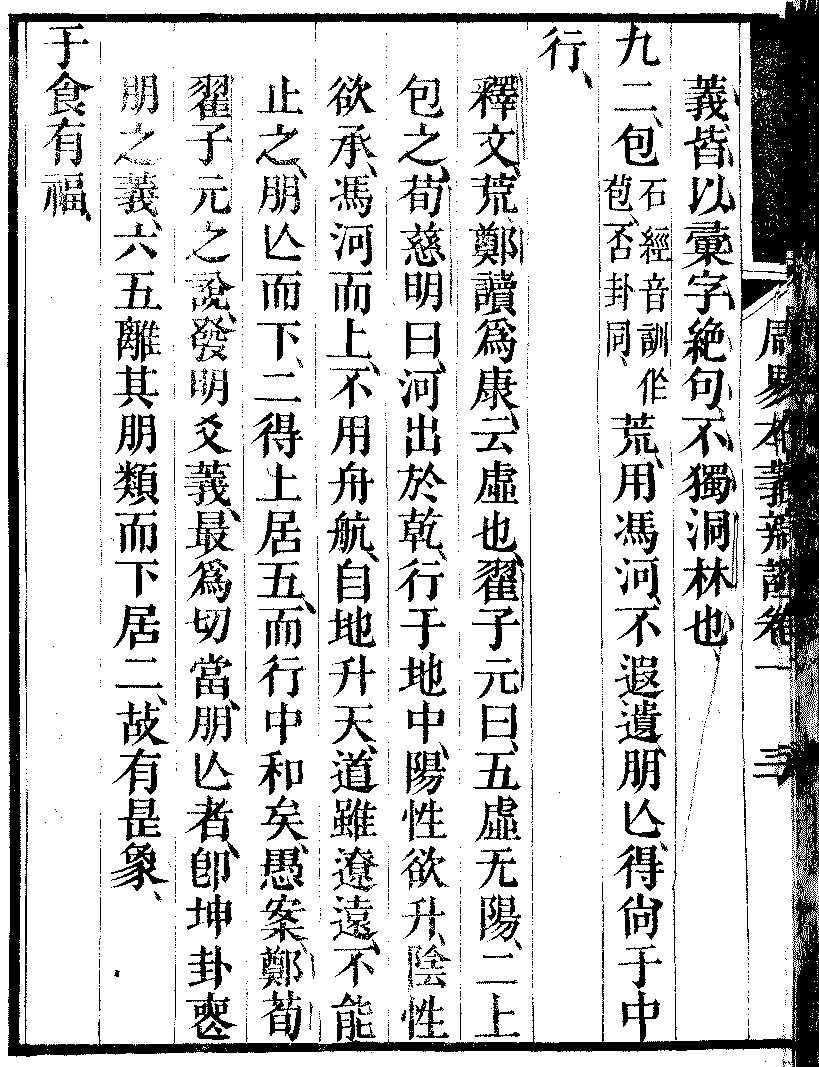 義、皆以彙字絶句、不獨洞林也、
九二、包石經音訓作苞、否卦同、荒、用馮河、不遐遺、朋亾、得尙于中
行、
釋文、荒、鄭讀爲康、云虛也、翟子元曰、五虛无陽、二上
包之、荀慈明曰、河出於乾、行于地中、陽性欲升、陰性
欲承、馮河而上、不用舟航、自地升天、道雖遼遠、不能
止之、朋亾而下、二得上居五、而行中和矣、愚案、鄭荀
翟子元之說、發明爻義、最爲切當、朋亾者、卽坤卦喪
朋之義、六五離其朋類而下居二、故有是象、
于食有福、
周易本義辨證卷一 三